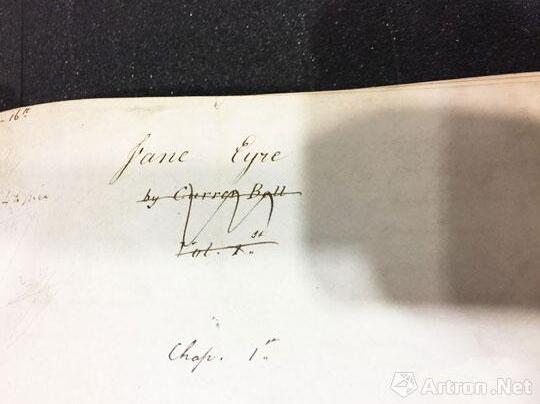 16th
Jane Eyre
by Currer Bell
Vol. 1st
Chap. 1st
Artron.Net